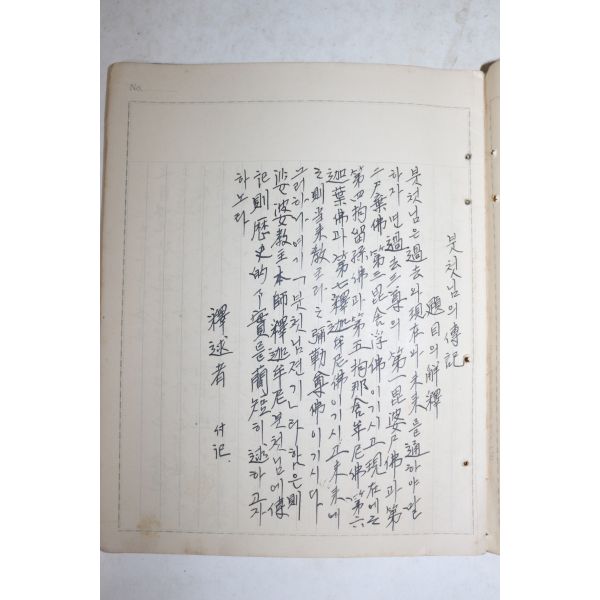 No.
붓첫님의 傳記
題目의 解釋
붓첫님은 過去와 現在와 未來를 通하야 말
하자면 過去三尊의 第一毘婆尸佛과 第
二尸棄佛 第三毘舍浮佛이기시고 現在에는
第四拘留孫佛과 第五拘那舍牟尼佛、第六
迦葉佛과 第七釋迦牟尼佛이기시고 未來에
는 則 當來敎主라는 彌勒尊佛이기시다
그러하니 여기「붓첫님전기」라 함은 則
娑婆敎主本師釋迦牟尼붓첫님에 傳
記 則 歷史的 事實을 簡短히 述하고자
하노라
釋述者 付記.